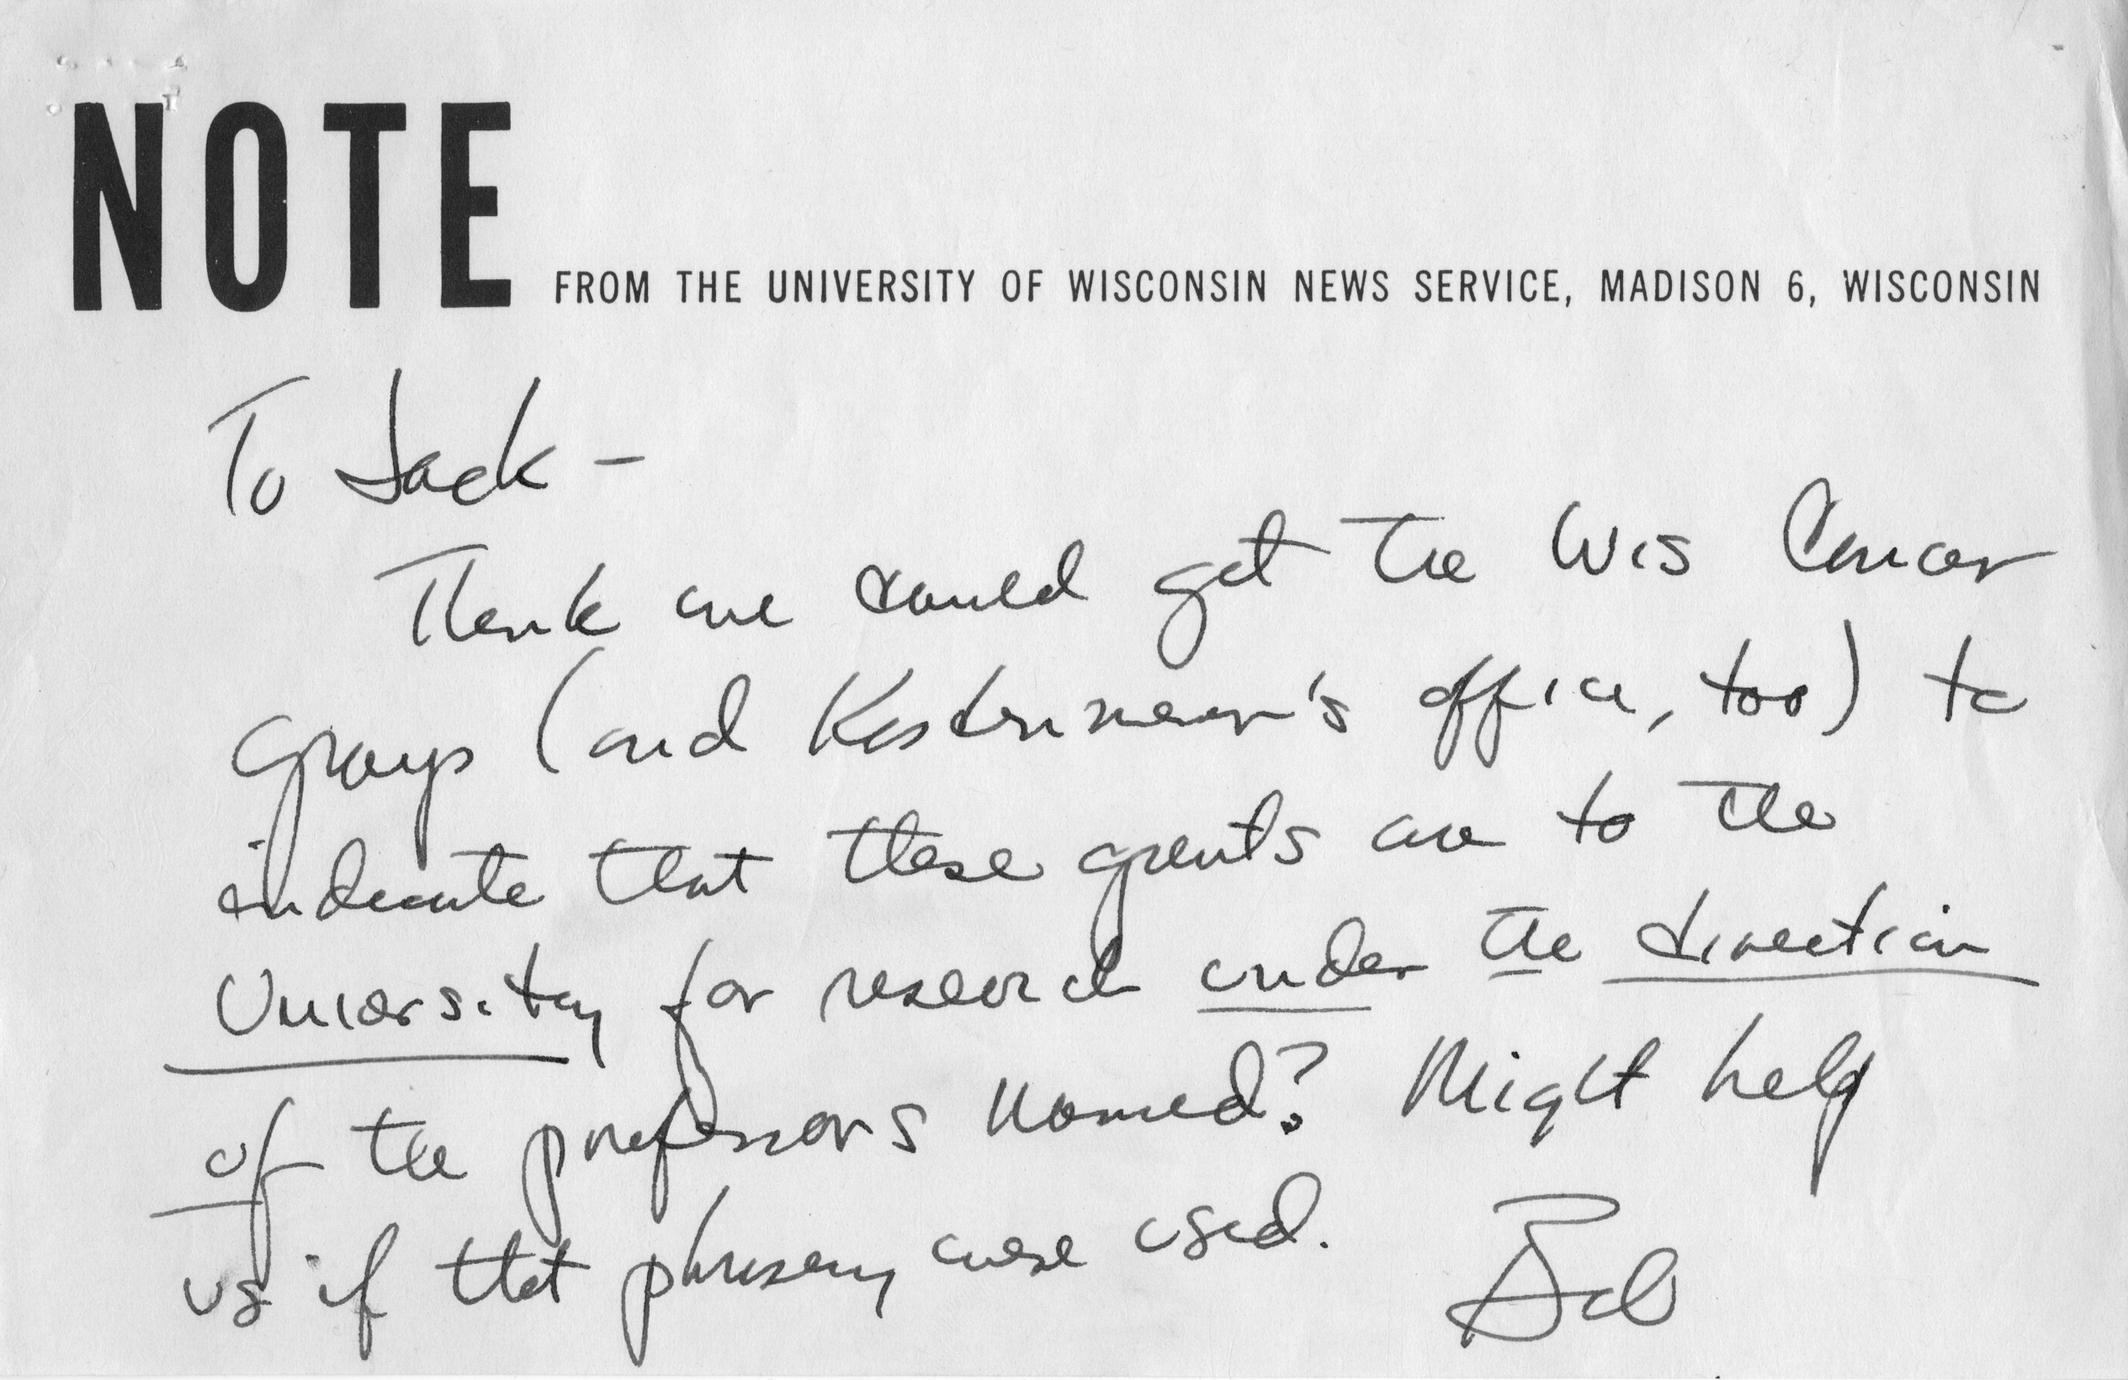 NOTE FROM THE UNIVERSITY OF WISCONSIN NEWS SERVICE, MADISON 6, WISCONSIN
To Jack –
Think we could get the Wis Cancer
group (and Kastenmeier's office, too) to
indicate that these grants are to the
University for research under the direction
of the professors named? Might help
us if that phrasing were used. Bob